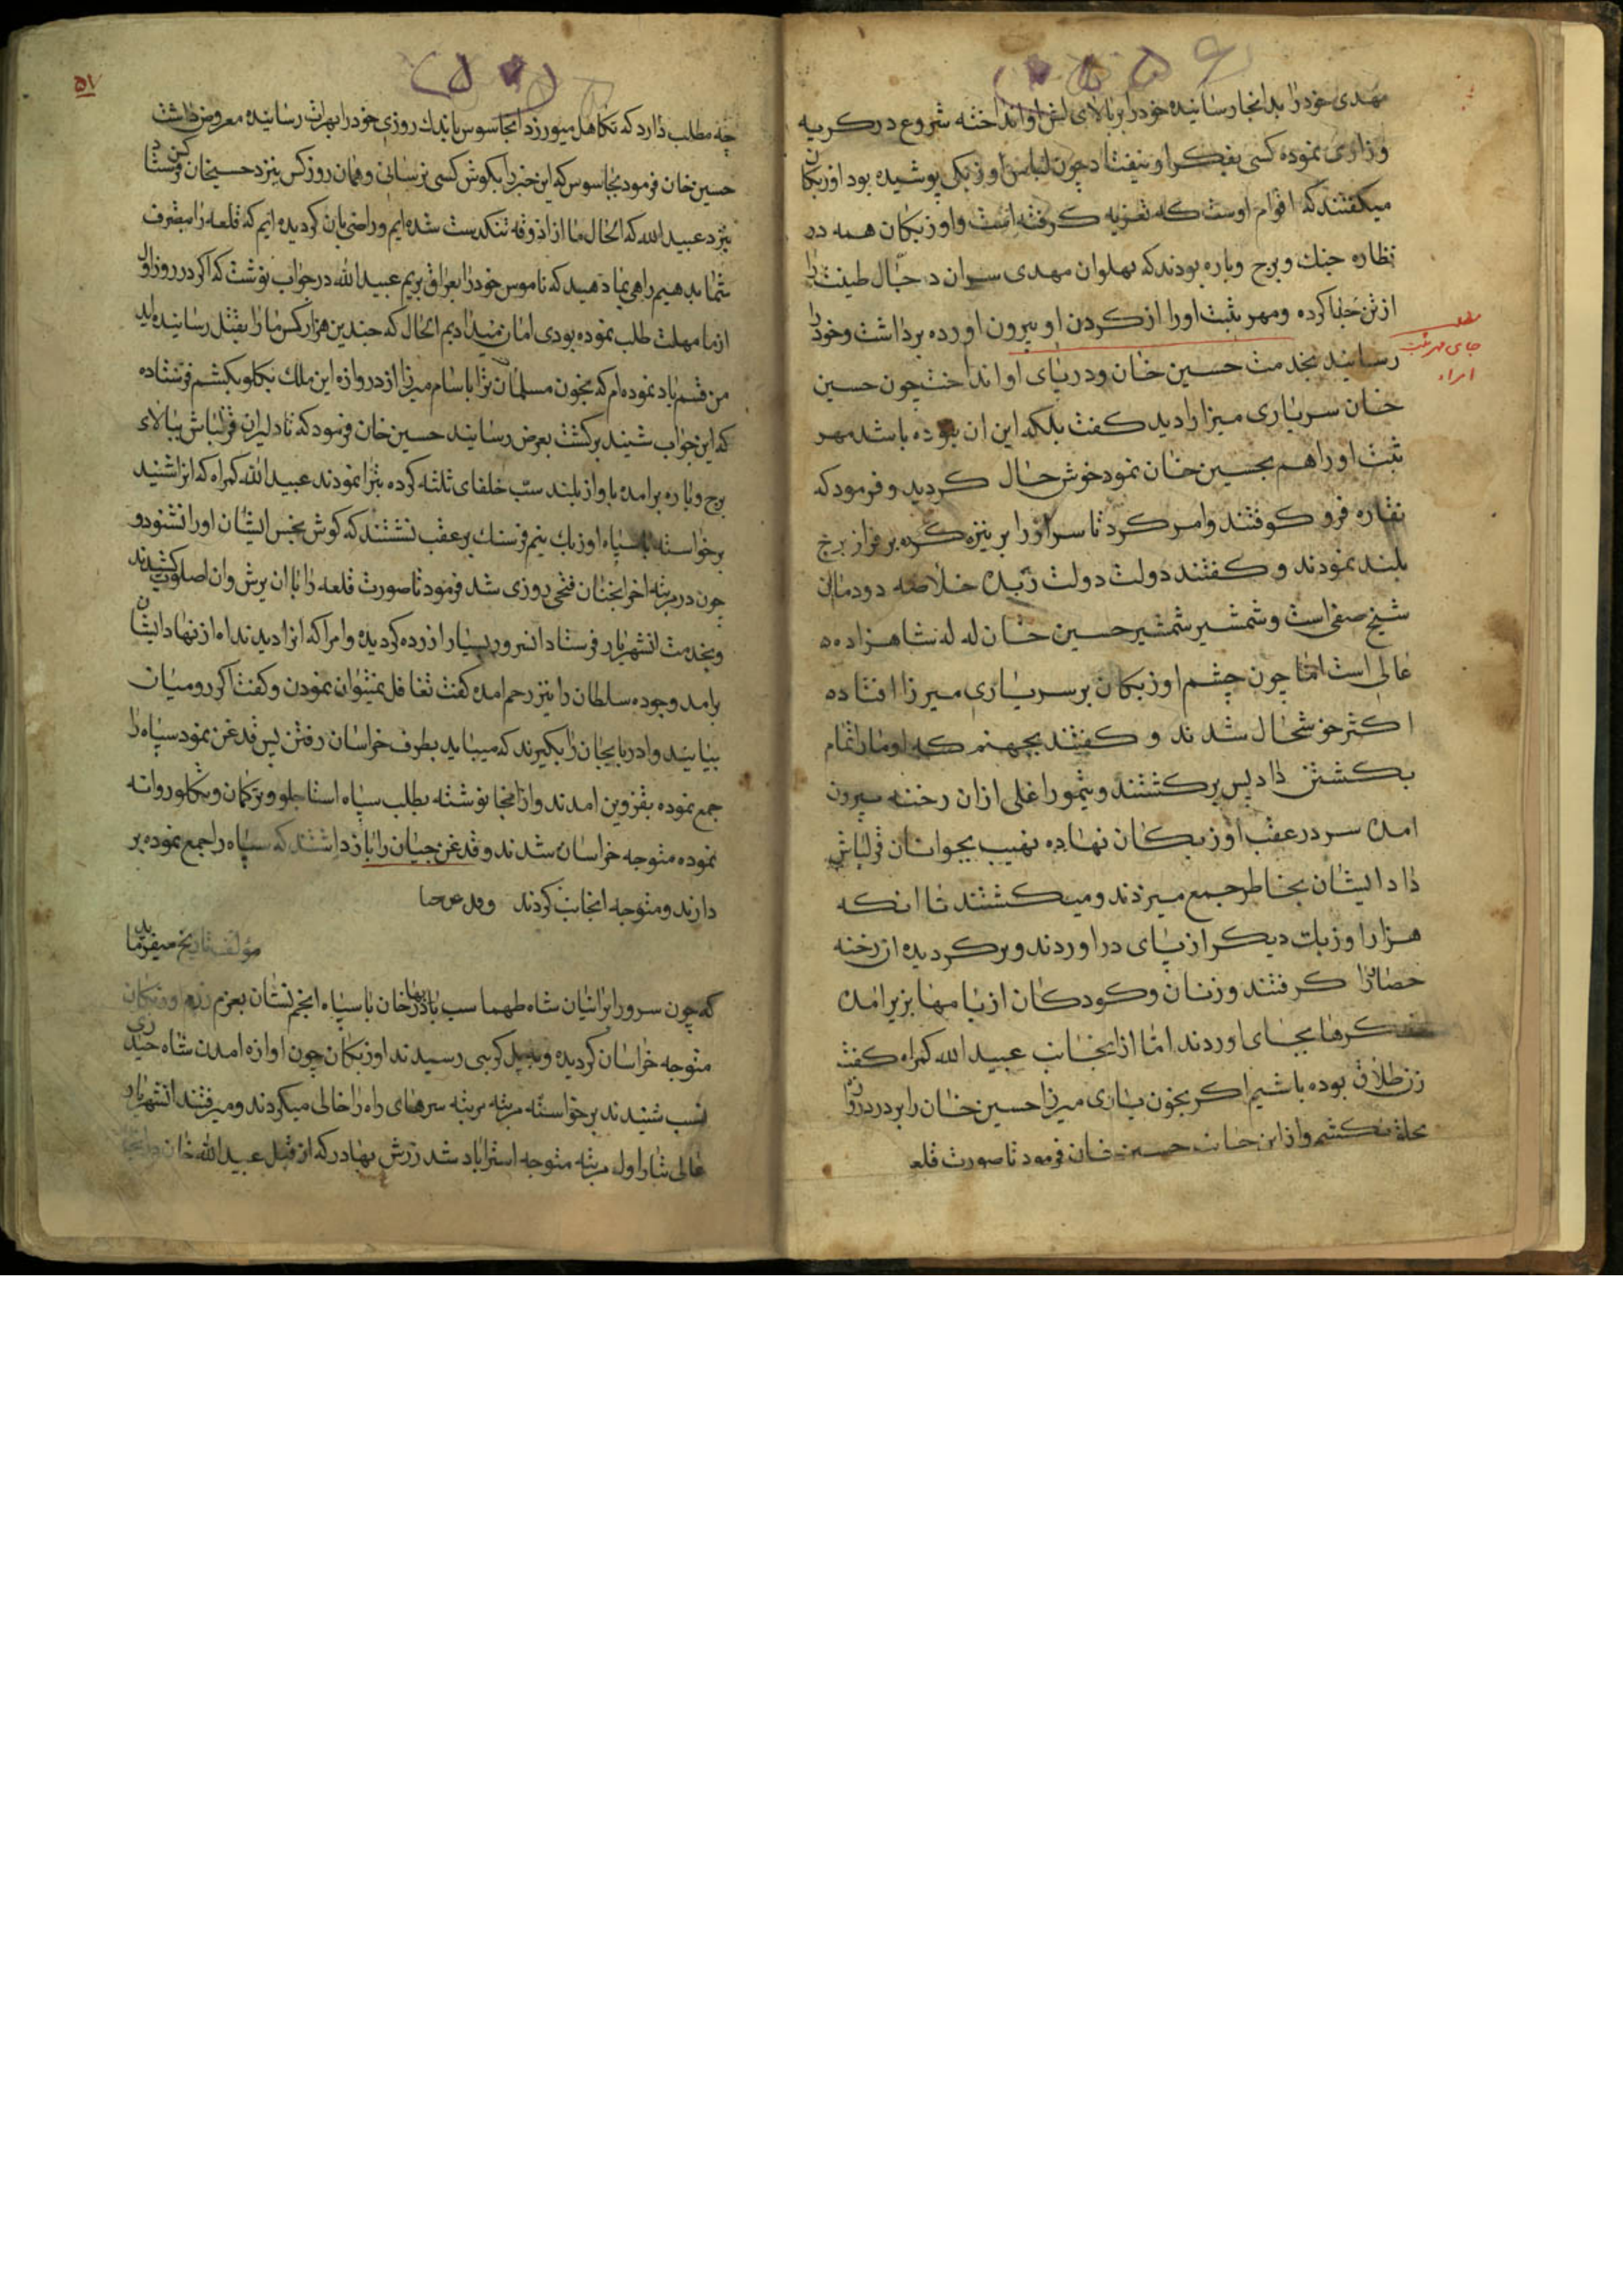 مهدی خود را بدانجا رسانیده خود را بر بالای نعش او انداخته شروع در کریه
و زاری نموده کسی بفکر او نیفتاد چون لباس اوزبکی پوشیده بود اوزبکان
میکفتند که اقوام اوست که تعزیه کرفته است و اوزبکان همه در
نظاره جنك و برج و باره بودند که پهلوان مهدی سر ان دجال طینت را
از تن جدا کرده و مهر مثبت او را از کردن او بیرون اورده برداشت و خود را
رسانید بخدمت حسین خان و در پای او انداخت چون حسین
خان سر یاری میرزا را دید کفت بلکه این ان بوده باشد مهر
مثبت او را هم بحسین خان نمود خوش حال کردید و فرمود که
نقاره فرو کوفتند و امر کرد تا سر او را بر نیزه کرده بر فراز برج
بلند نمودند و کفتند دولت دولت زبده خلاصه دودمان
شیخ صفی است و شمشیر شمشیر حسین خان له له شاهزاده
عالی است اما چون چشم اوزبکان بر سر یاری میرزا افتاده
اکثر خوشحال شدند و کفتند بجهنم که او ما را تمام
بکشتن داد پس برکشتند و تیمور اغلی از ان رخنه بیرون
امده سر در عقب اوزبکان نهاده نهیب بجوانان قزلباش
داد ایشان بخاطر جمع میزدند و میکشتند تا انکه
هزار اوزبك دیکر از پای در اوردند و برکردیده از رخنه
حصار را کرفتند و زنان و کودکان از بامها بزیر امده
شکرها بجای اوردند اما از انجانب عبید الله کمراه کفت
زن طلاق بوده باشیم اکر بخون یاری میرزا حسین خان را بر در دروازه
بحلق نکشم و از این جانب حسین خان فرمود تا صورت قلعه
مطلب
جای مهر مثبت
امراء
۵۷
چه مطلب دارد که تکاهل میورزد انجاسوس باندك روزی خود را بهرات رسانیده معروض داشت
حسین خان فرمود بجاسوس که این خبر را بکوش کسی نرسانی و همان روز کس بنزد حسیخان فرستاد
بنزد عبید الله که الحال ما از اذوقه تنکدست شده ایم و راضی بان کردیده ایم که قلعه را بتصرف
شما بدهیم راهی بما دهید که ناموس خود را بعراق بریم عبید الله در جواب نوشت که اکر در روز اول
از ما مهلت طلب نموده بودی امان میدادیم الحال که چندین هزار کس ما را بقتل رسانیده اید
من قسم یاد نموده ام که بخون مسلمانان ترا با سام میرزا از دروازه این ملك بکلو بکشم فرستاده
که این جواب شنید برکشت بعرض رسانید حسین خان فرمود که تا دلیران قزلباش ببالای
برج و باره برامده باواز بلند سب خلفای ثلثه کرده تبرا نمودند عبید الله کمراه که انرا شنید
برخواسته با سپاه اوزبك نیم فرسنك بر عقب نشستند که کوش نجس ایشان او را نشنود و
چون در مرتبه اخر انچنان فتحی روزی شد فرمود تا صورت قلعه را با ان یرش و ان اصلوب کشیدند
و بخدمت انشهریار فرستاد انسرور بسیار ازرده کردیده و امرا که انرا دیدند اه از نهاد ایشان
برامد و جوده سلطان را نیز رحم امده کفت تغافل نمیتوان نمودن و کفت اکر رومیان
بیایند و ادربایجان را بکیرند که میباید بطرف خراسان رفتن پس قدغن نمود سپاه را
جمع نموده بقزوین امدند و از انجا نوشته بطلب سپاه استاجلو و ترکمان و تکلو روانه
نموده متوجه خراسان شدند و قدغن جیان را باز داشتند که سپاه را جمع نموده بر
دارند و متوجه انجانب کردند
مؤلف تاریخ میفرماید
که چون سرور ایرانیان شاه طهماسب بهادر خان با سپاه انجم نشان بعزم رزم اوزبکان
متوجه خراسان کردیده و به پل کرپی رسیدند اوزبکان چون اوازه امدن شاه حیدری
نسب شنیدند برخواسته مرتبه مرتبه سرهای راه را خالی میکردند و میرفتند انشهریار
عالی تبار اول مرتبه متوجه استراباد شد زرش بهادر که از قبل عبید الله خان در انجا